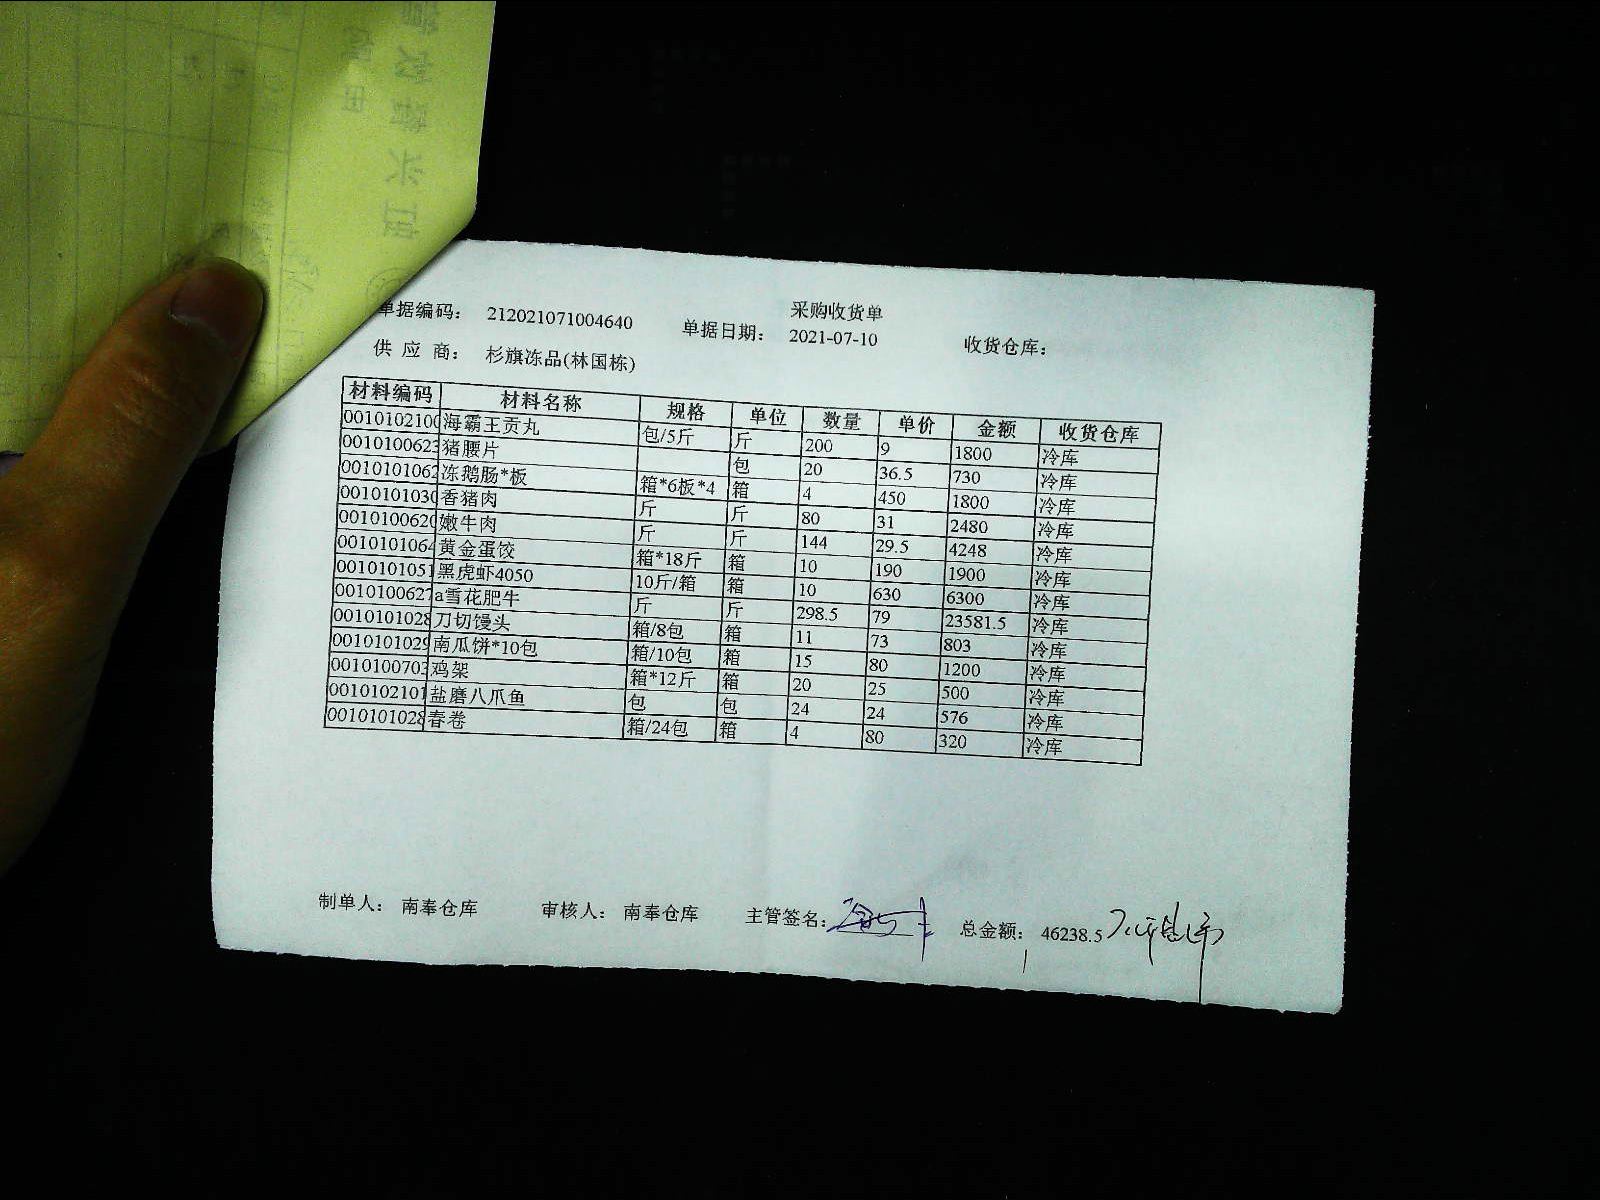 采购收货单
单据编码： 212021071004640 单据日期： 2021-07-10 收货仓库：
供 应 商： 杉旗冻品(林国栋)
材料编码 材料名称 规格 单位 数量 单价 金额 收货仓库
0010102100 海霸王贡丸 包/5斤 斤 200 9 1800 冷库
0010100623 猪腰片 包 20 36.5 730 冷库
0010101062 冻鹅肠*板 箱*6板*4 箱 4 450 1800 冷库
0010101030 香猪肉 斤 斤 80 31 2480 冷库
0010100620 嫩牛肉 斤 斤 144 29.5 4248 冷库
0010101064 黄金蛋饺 箱*18斤 箱 10 190 1900 冷库
0010101051 黑虎虾4050 10斤/箱 箱 10 630 6300 冷库
0010100627 a雪花肥牛 斤 斤 298.5 79 23581.5 冷库
0010101028 刀切馒头 箱/8包 箱 11 73 803 冷库
0010101029 南瓜饼*10包 箱/10包 箱 15 80 1200 冷库
0010100703 鸡架 箱*12斤 箱 20 25 500 冷库
0010102101 盐磨八爪鱼 包 包 24 24 576 冷库
0010101028 春卷 箱/24包 箱 4 80 320 冷库
制单人： 南奉仓库 审核人： 南奉仓库 主管签名： 总金额： 46238.5